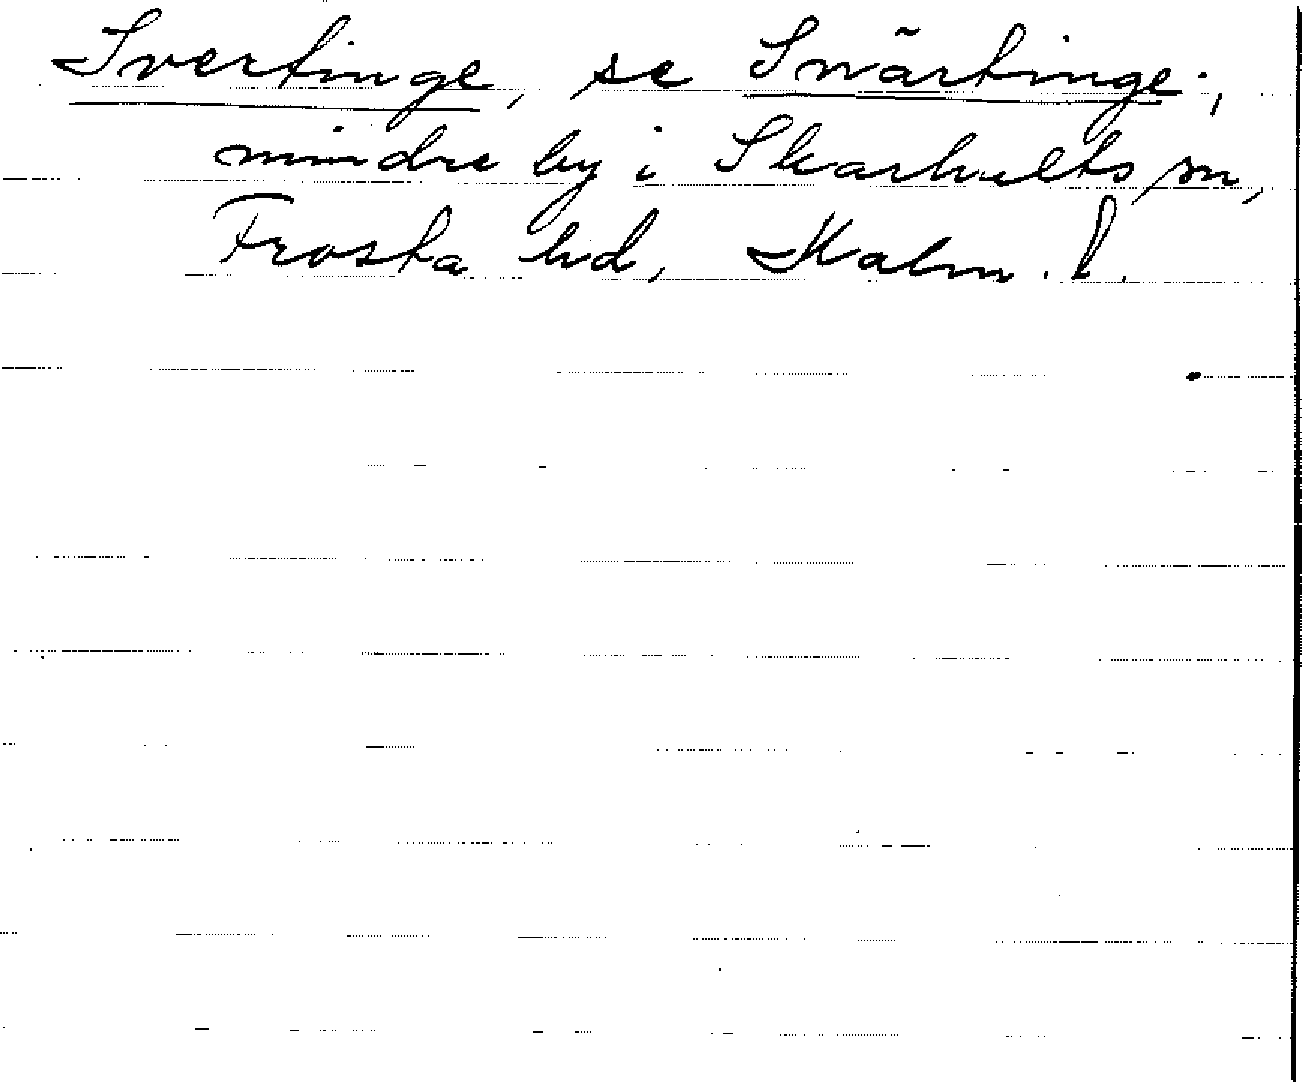 Svertinge, se Svärtinge;
mindre by i Skarhults sn,
Frosta hd, Malm. l.